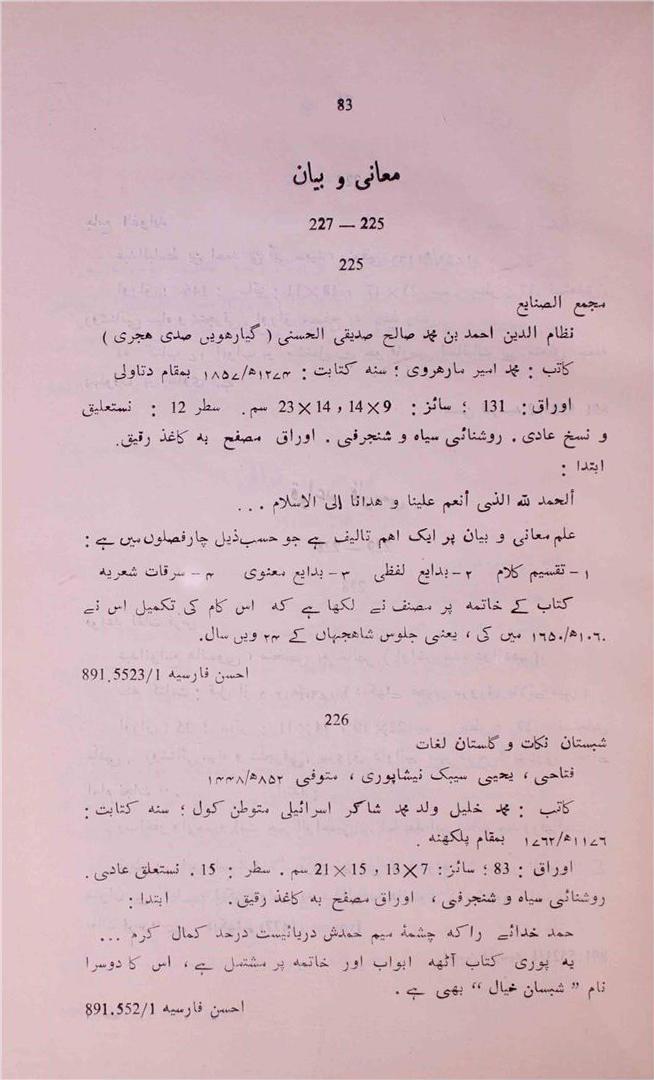 83
معانی و بیان
225 — 227
225
مجمع الصنایع
نظام الدین احمد بن محمد صالح صدیقی الحسنی ( گیارھویں صدی ھجری )
کاتب : محمد امیر مارھروی ؛ سنہ کتابت : ۱۲۷۴ھ/۱۸۵۷ بمقام دتاولی
اوراق : 131 ؛ سائز : 9×14 , 14×23 سم . سطر 12 : نستعلیق
و نسخ عادی . روشنائی سیاہ و شنجرفی . اوراق مصفح بہ کاغذ رقیق .
ابتدا :
ألحمد للہ الذی أنعم علینا و ھدانا إلی الاسلام ...
علم معانی و بیان پر ایک اھم تالیف ہے جو حسب ذیل چارفصلوں میں ہے :
۱ - تقسیم کلام ۲ - بدایع لفظی ۳ - بدایع معنوی ۴ - سرقات شعریہ
کتاب کے خاتمہ پر مصنف نے لکھا ہے کہ اس کام کی تکمیل اس نے
۱۰۶۰ھ/۱۶۵۰ میں کی ، یعنی جلوس شاھجہاں کے ۲۴ ویں سال .
احسن فارسیہ 891.5523/1
226
شبستان نکات و گلستان لغات
فتاحی ، یحییٰ سیبک نیشاپوری ، متوفی ۸۵۲ھ/۱۴۴۸
کاتب : محمد خلیل ولد محمد شاکر اسرائیلی متوطن کول ؛ سنہ کتابت :
۱۱۷۶ھ/۱۷۶۲ بمقام پلکھنہ .
اوراق : 83 ؛ سائز : 7×13 , 15×21 سم . سطر : 15 . نستعلق عادی .
روشنائی سیاہ و شنجرفی ، اوراق مصفح بہ کاغذ رقیق . ابتدا :
حمد خدائے راکہ چشمۂ میم حمدش دریائیست درحد کمال کرم ...
یہ پوری کتاب آٹھہ ابواب اور خاتمہ پر مشتمل ہے ، اس کا دوسرا
نام ” شبسان خیال “ بھی ہے .
احسن فارسیہ 891.552/1